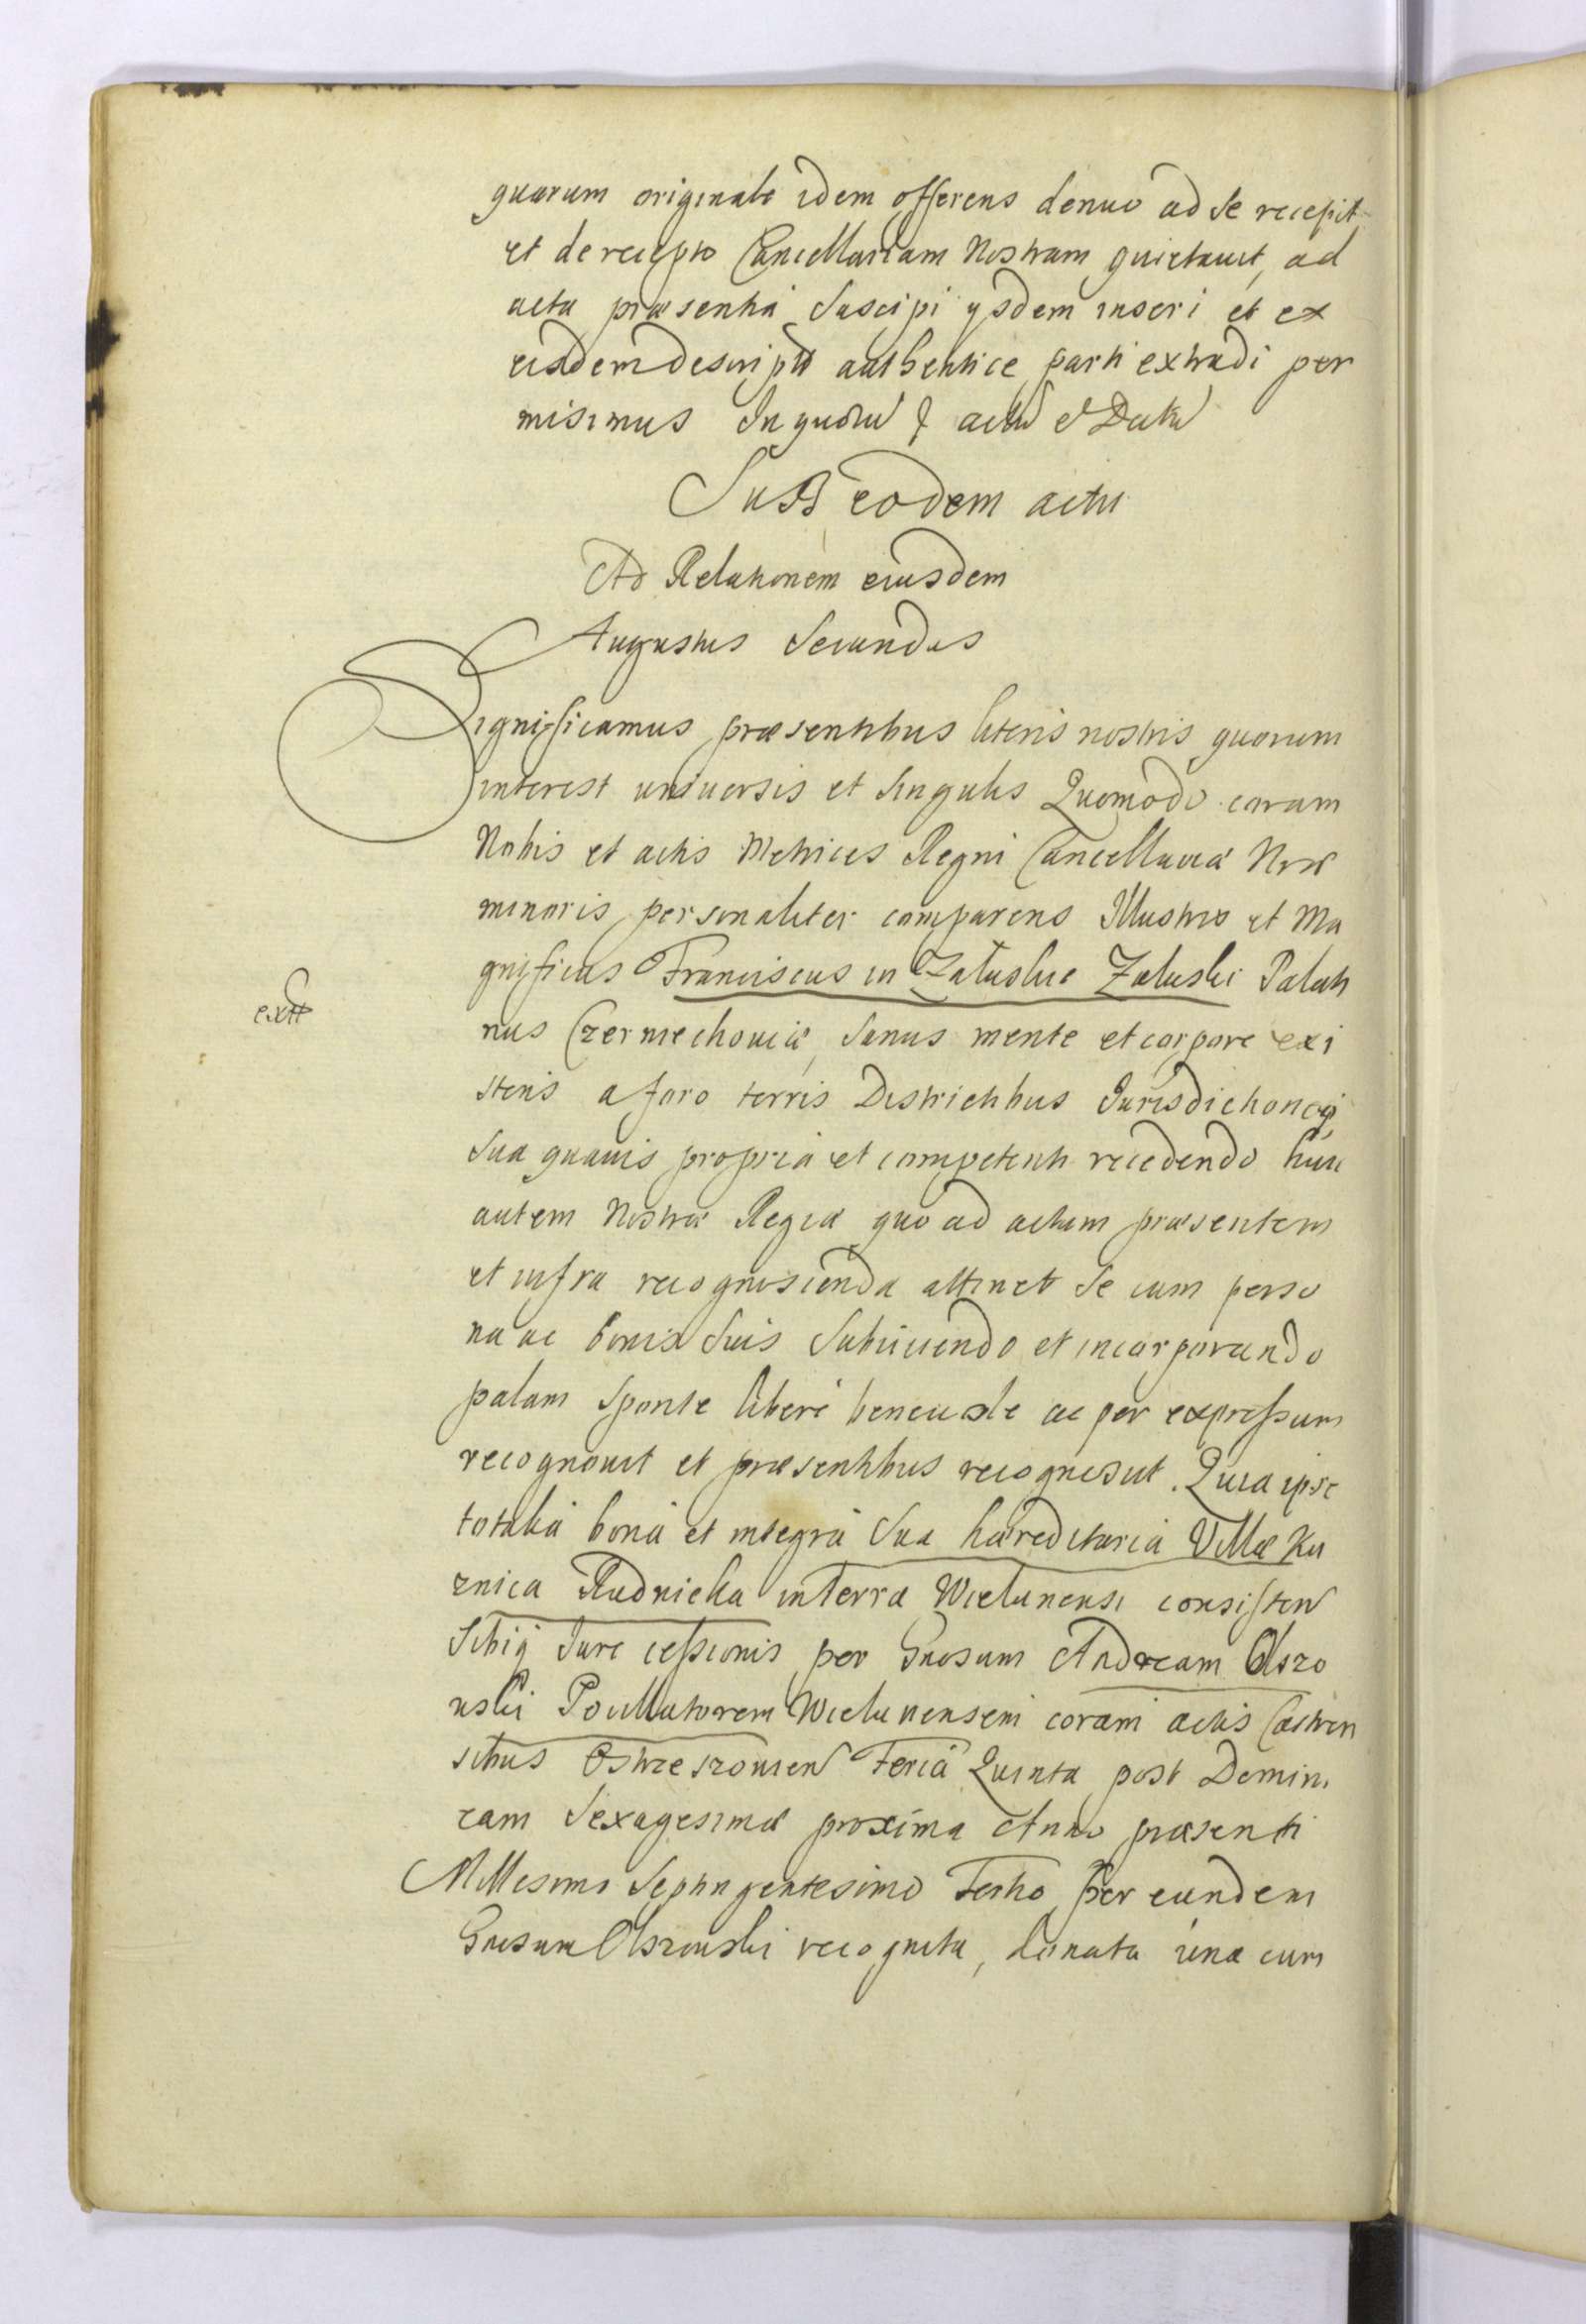 quarum originale idem offerens denuo ad se recepit
et de recepto Cancellariam Nostram quietauit, ad
acta præsentia suscipi ysdem inseri et ex
eisdem descriptu authentice parti extradi per
misimus In quoru & actu et Datu
Sub eodem actu
Ad Relationem eiusdem
Augustus Secundus
Significamus præsentibus literis nostris quorum
interest uniuersis et singulis Quomodo coram
Nobis et actis Metrices Regni Cancellariæ Nræ
minoris personaliter comparens Illustris et Ma
gnificus Franciscus in Załuskie Załuski Palati
nus Czerniechouiæ, sanus mente et corpore exi
stens a foro terris Districtibus Jurisdictioneq
sua quauis propria et competenti recedendo huic
autem Nostræ Regiæ quo ad actum præsentem
et infra recognoscenda attinet se cum perso
na ac bonis suis subiiciendo et incorporando
palam sponte liberè beneuole ac per expressum
recognouit et præsentibus recognoscit. Quia ipse
totalia bona et integra sua hæreditaria Villæ Ku
znica Rudnicka in Terra Wielunensi consisten
sibiq Jure cessionis per Gnosum Andream Olszo
wski Pocillatorem Wielunensem coram actis Castren
sibus Ostrzeszouien Feria Quinta post Domini
cam Sexagesimæ proxima Anno præsenti
Millesimo Septingentesimo Tertio per eundem
Gnosum Olszouski recognita, donata unà cum
extt